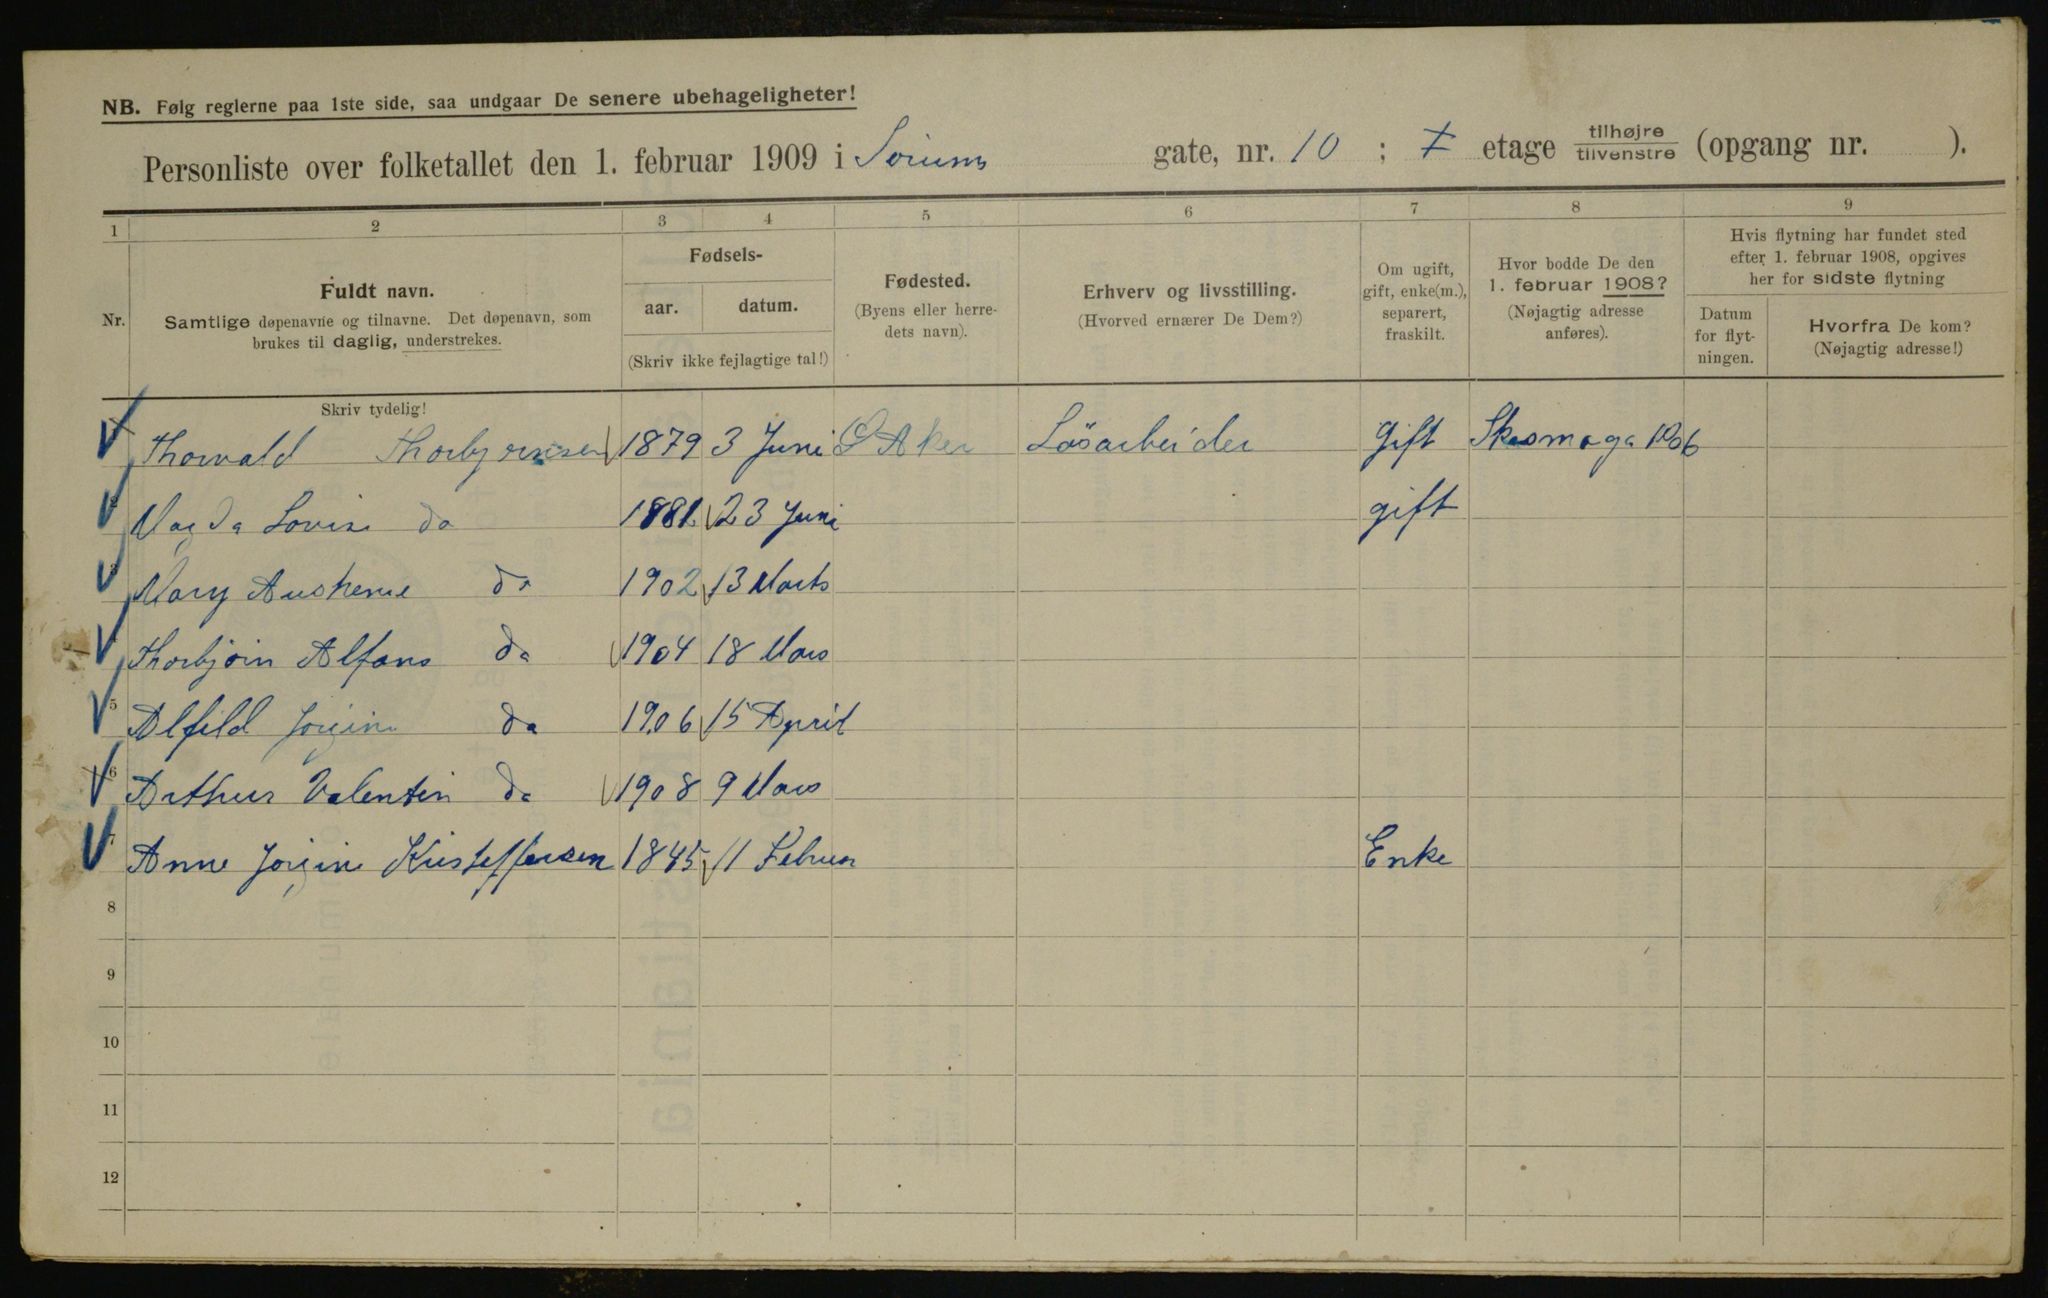 NB. Følg reglerne paa 1ste side, saa undgaar De senere ubehageligheter!
Personliste over folketallet den 1. februar 1909 i Sörums gate, nr. 10 ; I etage tilhøjre tilvenstre (opgang nr. ).
1 2 3 4 5 6 7 8 9
Nr.
Fuldt navn.
Samtlige døpenavne og tilnavne. Det døpenavn, som
brukes til daglig, understrekes.
Fødsels-
aar. datum.
(Skriv ikke fejlagtige tal!)
Fødested.
(Byens eller herre-
dets navn).
Erhverv og livsstilling.
(Hvorved ernærer De Dem?)
Om ugift,
gift, enke(m.),
separert,
fraskilt.
Hvor bodde De den
1. februar 1908?
(Nøjagtig adresse
anføres).
Hvis flytning har fundet sted
efter 1. februar 1908, opgives
her for sidste flytning
Datum
for flyt-
ningen.
Hvorfra De kom?
(Nøjagtig adresse!)
Skriv tydelig!
Thorvald Thorbjørnsen 1879 3 Juni Aker Løsarbeider Gift
2 Magda Lovise do 1881 23 Juni gift
3 Mary do 1902 13 Marts
4 Thorbjørn Alfons do 1904 18 Mars
5 Alfild Jorgine do 1906 15 April
6 Arthur Valentin do 1908 9 Mars
7 Anne Jorgine Kristoffersen 1845 11 Februar Enke
8
9
10
11
12